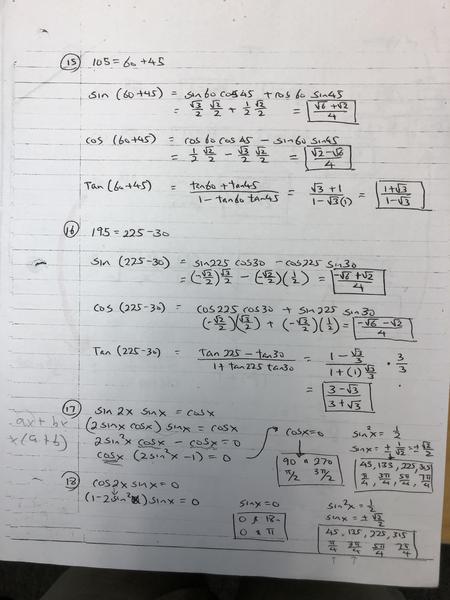 15 105 = 60 + 45
sin (60+45) = sin60 cos45 + cos60 sin45
= √3/2 √2/2 + 1/2 √2/2 = (√6+√2)/4
cos (60+45) = cos60 cos45 - sin60 sin45
= 1/2 √2/2 - √3/2 √2/2 = (√2-√6)/4
Tan (60+45) = (tan60 + tan45)/(1 - tan60 tan45) = (√3+1)/(1-√3(1)) = (1+√3)/(1-√3)
16 195 = 225-30
sin (225-30) = sin225 cos30 - cos225 sin30
= (-√2/2)(√3/2) - (-√2/2)(1/2) = (-√6+√2)/4
cos (225-30) = cos225 cos30 + sin225 sin30
(-√2/2)(√3/2) + (-√2/2)(1/2) = (-√6-√2)/4
Tan (225-30) = (Tan225 - tan30)/(1 + tan225 tan30) = (1-√3/3)/(1+(1)√3/3) · 3/3
= (3-√3)/(3+√3)
17 sin2x sinx = cosx
ax + bx
(2sinx cosx) sinx = cosx
x(a+b)
2sin²x cosx - cosx = 0
cosx (2sin²x-1) = 0
cosx = 0
90 & 270
π/2 3π/2
sin²x = 1/2
sinx = ± 1/√2 = ± √2/2
45, 135, 225, 315
π/4 3π/4 5π/4 7π/4
18 cos2x sinx = 0
(1-2sin²x) sinx = 0
sinx = 0
0 & 180
0 & π
sin²x = 1/2
sinx = ± √2/2
45, 135, 225, 315
π/4 3π/4 5π/4 7π/4